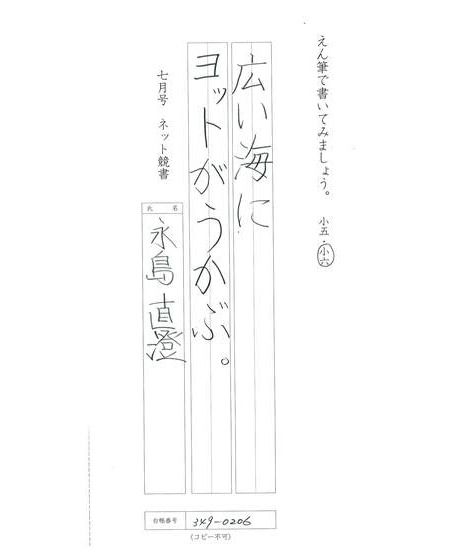 えん筆で書いてみましょう。 小五・小六
広い海に
ヨットがうかぶ。
七月号 ネット競書
氏名
永島直澄
台帳番号 349-0206
(コピー不可)